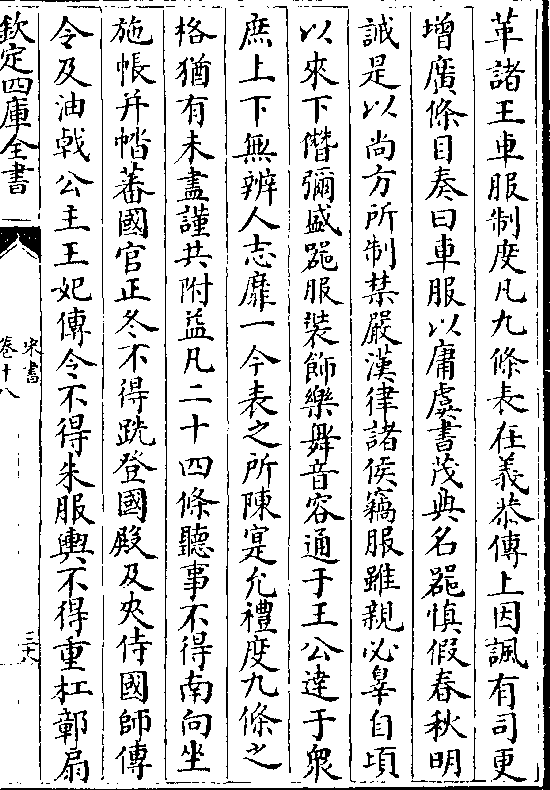 革諸王車服制度凡九條表在義恭傳上因諷有司更
增廣條目奏曰車服以庸虞書茂典名器慎假春秋明
誡是以尚方所制禁嚴漢律諸侯竊服雖親必辠自頃
以來下僭彌盛器服裝飾樂舞音容通于王公達于衆
庶上下無辨人志靡一今表之所陳寔允禮度九條之
格猶有未盡謹共附益凡二十四條聽事不得南向坐
施帳幷㡌蕃國官正冬不得跣登國殿及夾侍國師傳
令及油戟公主王妃傳令不得朱服輿不得重杠鄣扇
欽定四庫全書
宋書
卷十八
三六